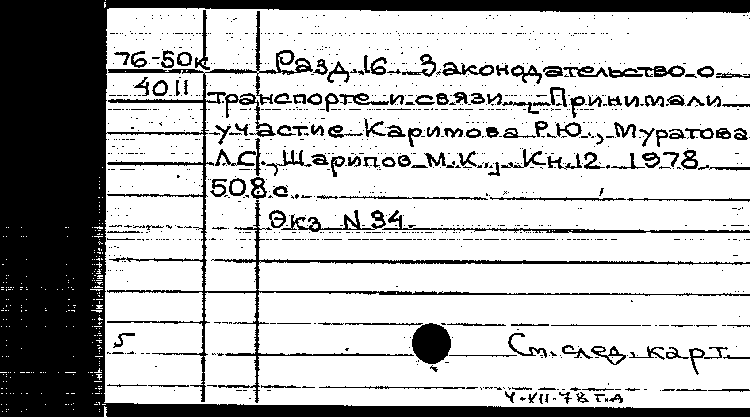 76-50к Разд 16. Законодательство о
4011 транспорте и связи. Принимали
участие Каримова Р.Ю., Муратова
Л.С., Шарипов М.К., Кн.12 1978.
508 с.
Экз N 34.
5 См. след. карт.
4-XII-78 Г.А